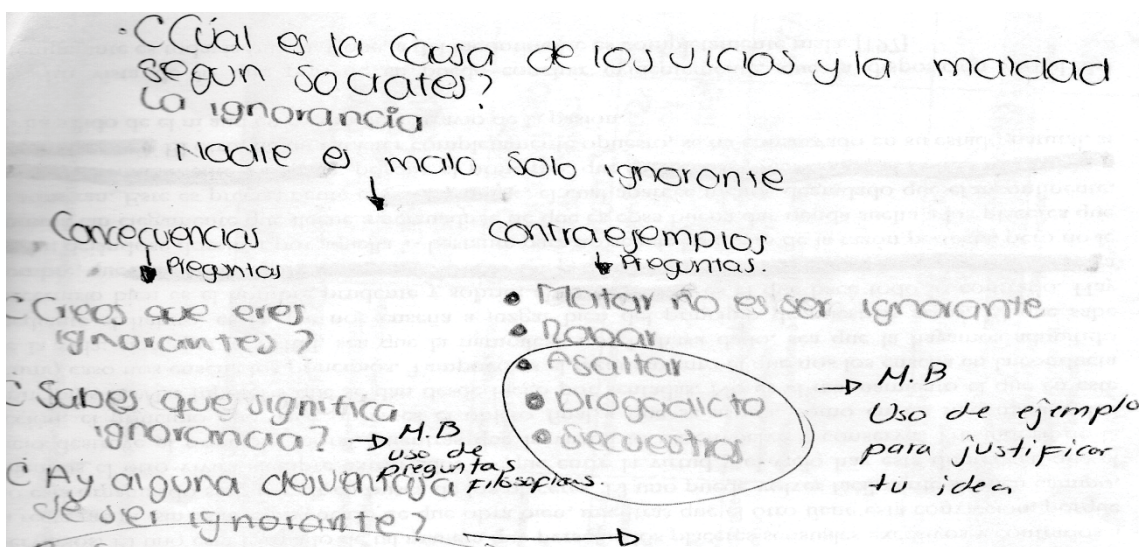 ¿Cúal es la Casa de los vicios y la maldad
segun socrates?
La ignorancia
Nadie es malo solo ignorante
Concecuencias
Preguntas
¿Crees que eres
ignorantes?
¿Sabes que significa
ignorancia?
M.B
uso de
preguntas
Filosoficas.
¿Ay alguna desventaja
de ser ignorante?
Contraejemplos
Preguntas.
• Matar no es ser ignorante
•
• Asaltar
• Drogadicto
•
M.B
Uso de ejemplo
para justificar
tu idea